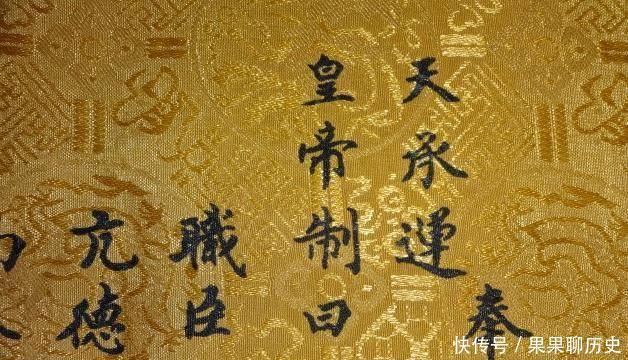 奉
天承運
皇帝制曰
職臣
亢德
快传号/果果聊历史